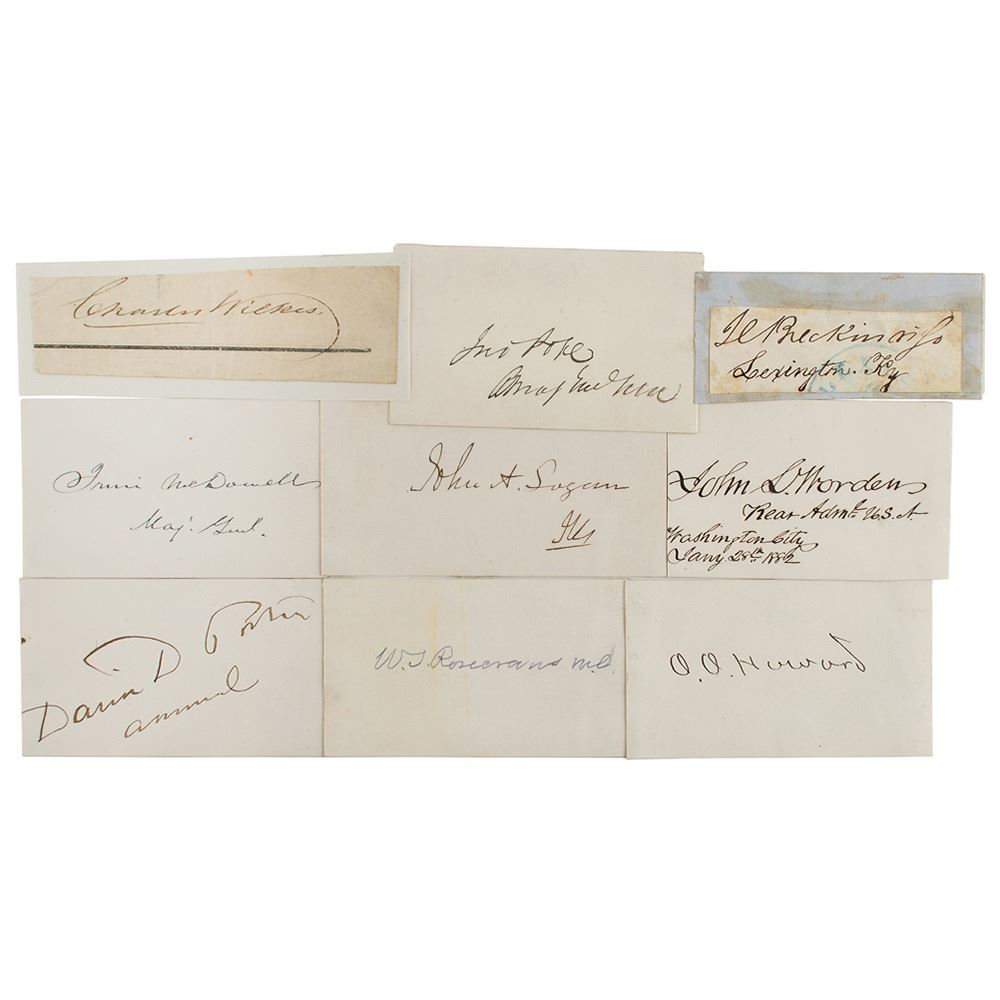 Charles Wilkes.
Jno Pope
Maj Genl USA
J C Breckinridge
Lexington. Ky
Irvin McDowell
Maj. Genl.
John A. Logan
Ills
John L. Worden
Rear Adml. U.S.N.
Washington City
Jany 28th 1882
David D Porter
Admiral
W. S. Rosecrans M.C.
O. O. Howard